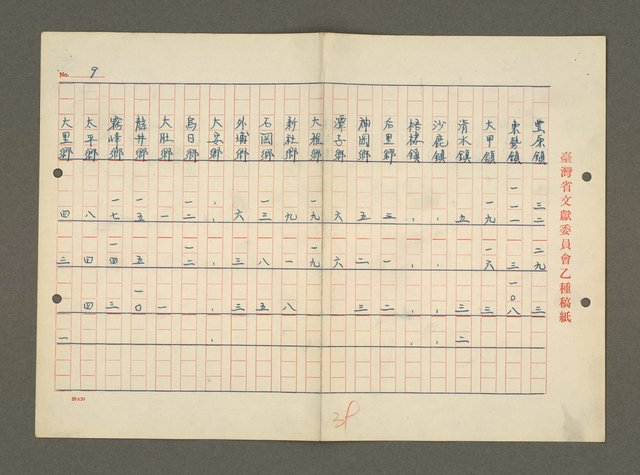 臺灣省文獻委員會乙種稿紙
No. 9
豊原鎮 三二 二九 三
東勢鎮 一一一 三 一〇八
大甲鎮 一九 一六 三
清水鎮 五 、 三 二
沙鹿鎮 、 、 、
梧棲鎮 、 、 、
后里鄉 三 一 二
神岡鄉 五 二 三
潭子鄉 六 六
大雅鄉 一九 一九
新社鄉 九 一 八
石岡鄉 一三 八 五
外埔鄉 六 三 三
大安鄉 、 、 、 、
烏日鄉 一二 一二
大肚鄉 一 一
龍井鄉 一五 五 一〇
霧峰鄉 一七 一四 三
太平鄉 八 四 四
大里鄉 四 三 一
20×20